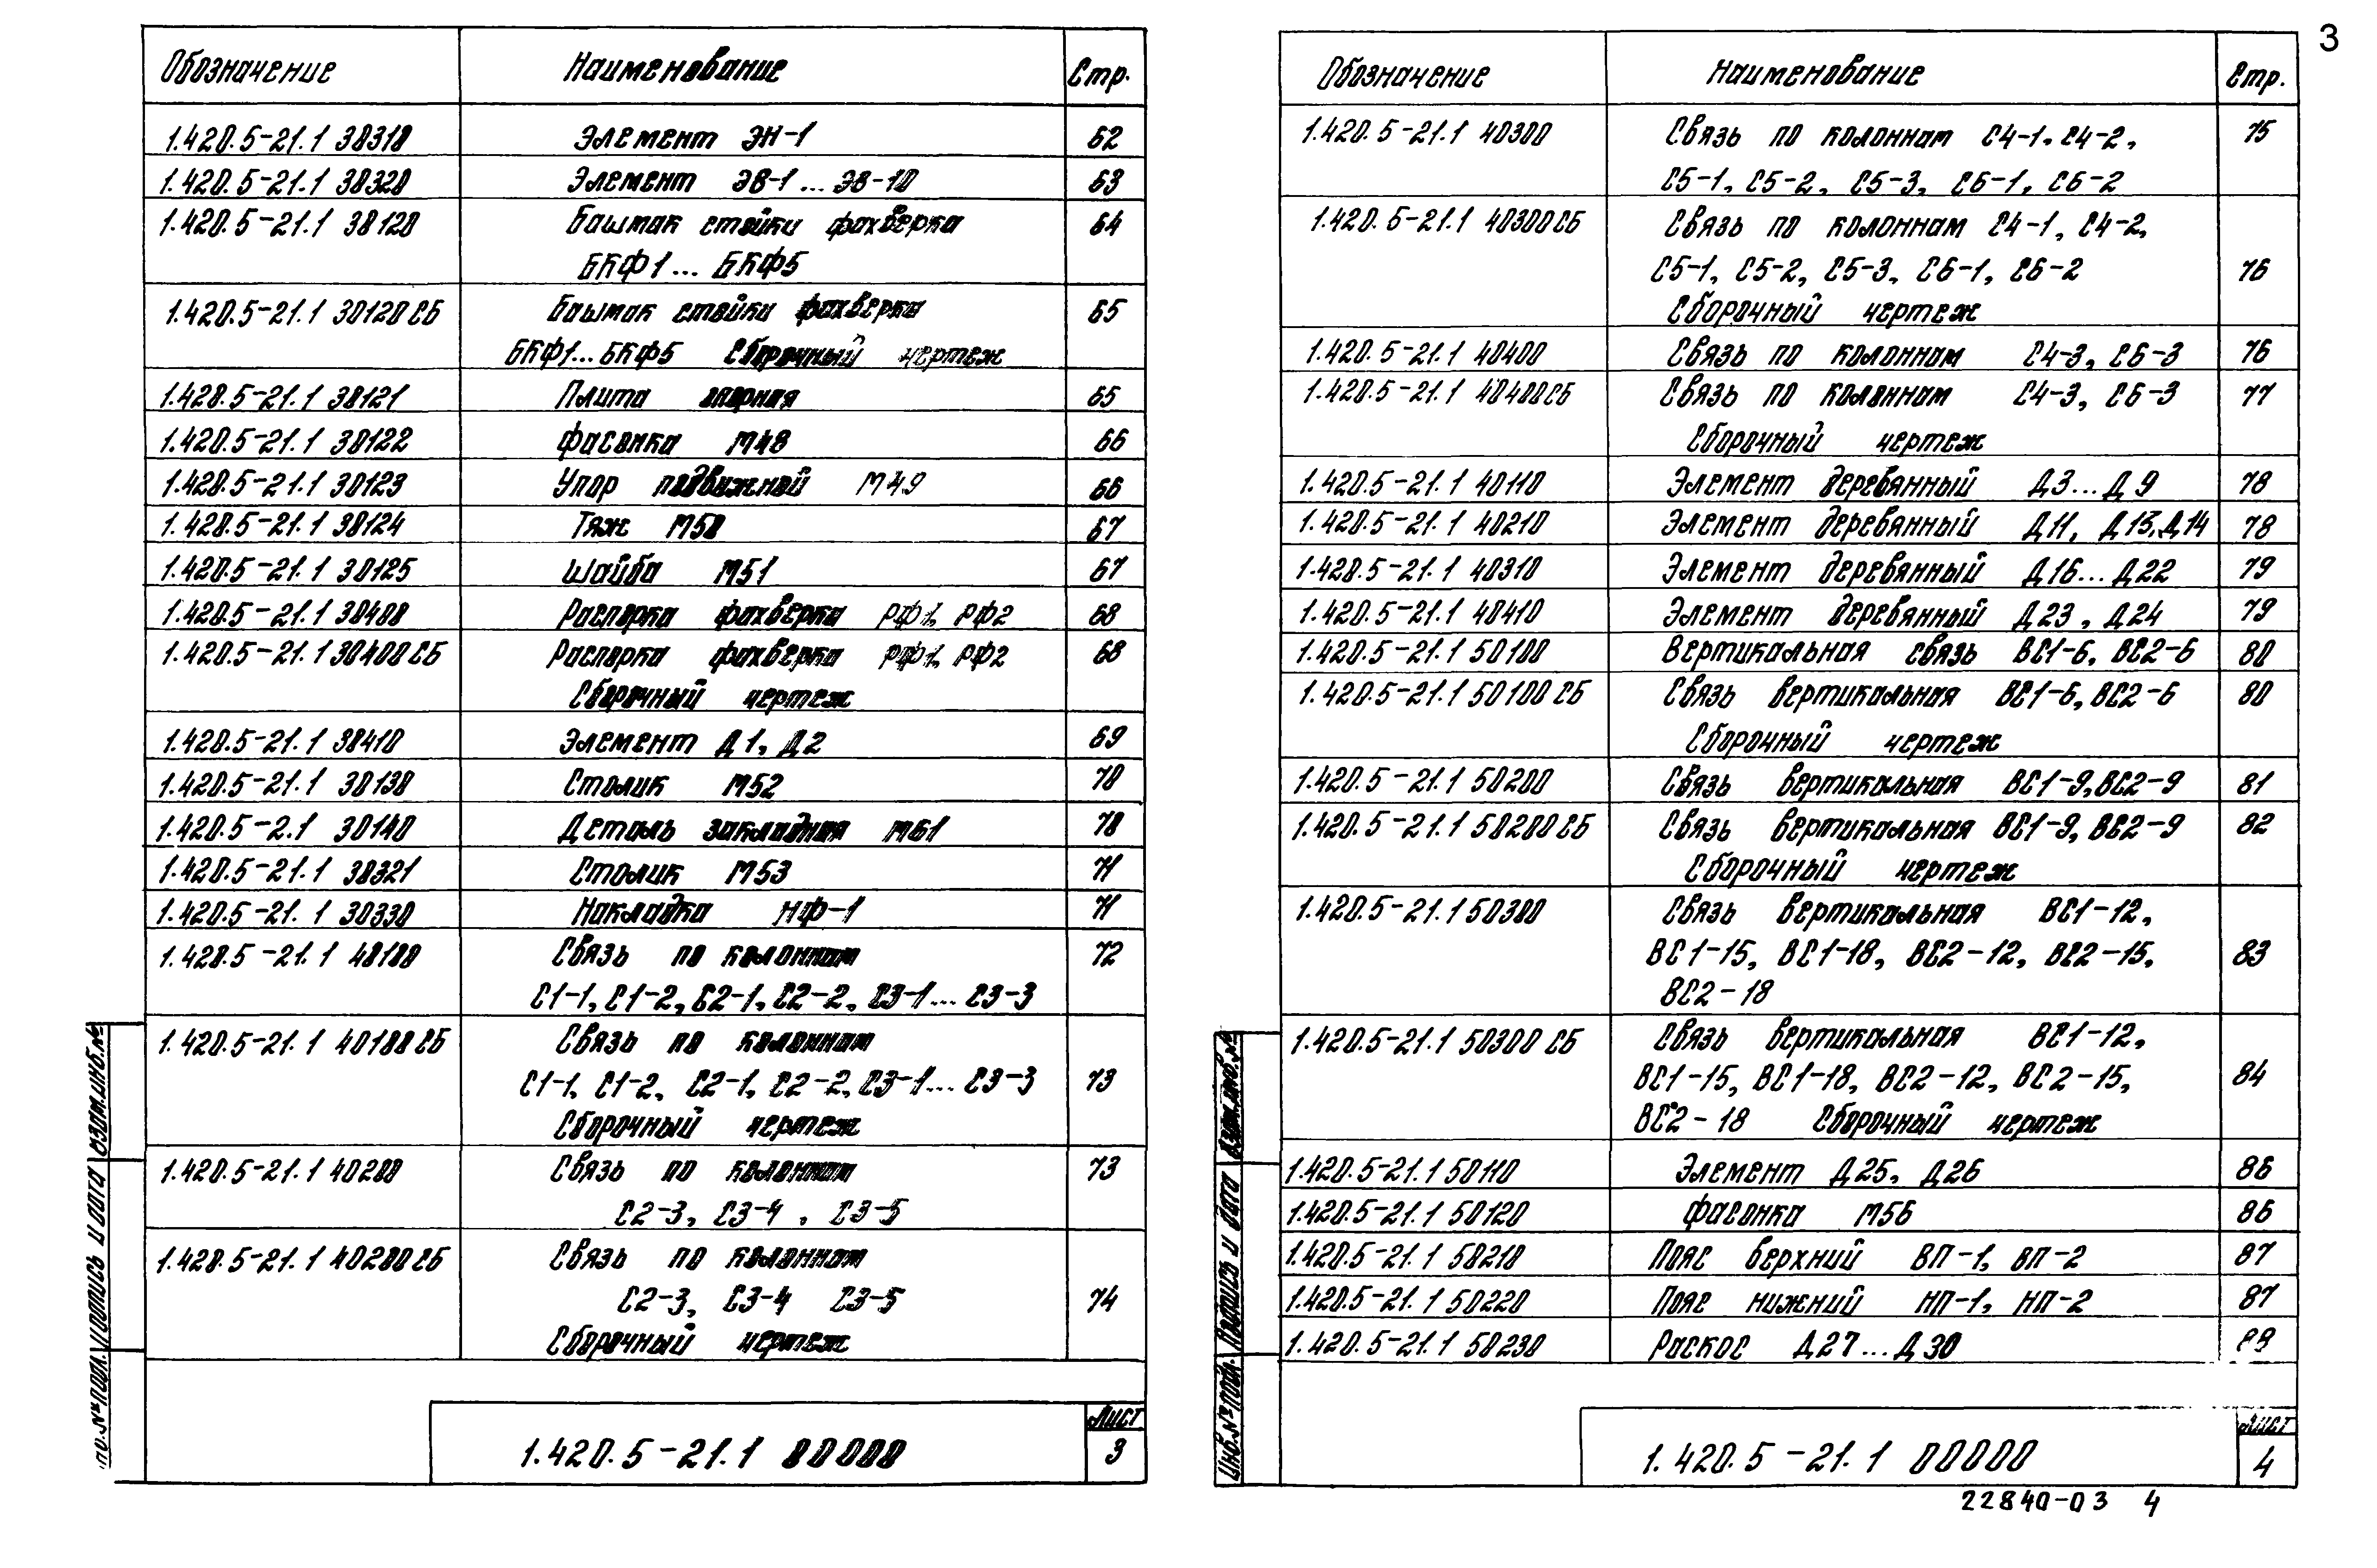 3
Обозначение Наименование Стр.
1.420.5-21.1 30310 Элемент ЭН-1 62
1.420.5-21.1 30320 Элемент ЭВ-1...ЭВ-10 63
1.420.5-21.1 30120 Башмак стойки фахверка 64
БКФ1...БКФ5
1.420.5-21.1 30120СБ Башмак стойки фахверка 65
БКФ1...БКФ5 Сборочный чертеж
1.420.5-21.1 30121 Плита опорная 65
1.420.5-21.1 30122 Фасонка М48 66
1.420.5-21.1 30123 Упор подвижной М49 66
1.420.5-21.1 30124 Тяж М50 67
1.420.5-21.1 30125 Шайба М51 67
1.420.5-21.1 30400 Распорка фахверка РФ1, РФ2 68
1.420.5-21.1 30400СБ Распорка фахверка РФ1, РФ2 68
Сборочный чертеж
1.420.5-21.1 30410 Элемент Д1, Д2 69
1.420.5-21.1 30130 Столик М52 70
1.420.5-2.1 30140 Деталь закладная М61 70
1.420.5-21.1 30321 Столик М53 71
1.420.5-21.1 30330 Накладка НФ-1 71
1.420.5-21.1 40100 Связь по колоннам 72
С1-1, С1-2, С2-1, С2-2, С3-1...С3-3
1.420.5-21.1 40100СБ Связь по колоннам
С1-1, С1-2, С2-1, С2-2, С3-1...С3-3 73
Сборочный чертеж
1.420.5-21.1 40200 Связь по колоннам 73
С2-3, С3-4, С3-5
1.420.5-21.1 40200СБ Связь по колоннам
С2-3, С3-4 С3-5 74
Сборочный чертеж
1.420.5-21.1 00000
Лист
3
Взам.инв.№
Подпись и дата
№ подл.
Обозначение Наименование Стр.
1.420.5-21.1 40300 Связь по колоннам С4-1, С4-2, 75
С5-1, С5-2, С5-3, С6-1, С6-2
1.420.5-21.1 40300СБ Связь по колоннам С4-1, С4-2,
С5-1, С5-2, С5-3, С6-1, С6-2 76
Сборочный чертеж
1.420.5-21.1 40400 Связь по колоннам С4-3, С6-3 76
1.420.5-21.1 40400СБ Связь по колоннам С4-3, С6-3 77
Сборочный чертеж
1.420.5-21.1 40110 Элемент деревянный Д3...Д9 78
1.420.5-21.1 40210 Элемент деревянный Д11, Д13, Д14 78
1.420.5-21.1 40310 Элемент деревянный Д16...Д22 79
1.420.5-21.1 40410 Элемент деревянный Д23, Д24 79
1.420.5-21.1 50100 Вертикальная связь ВС1-6, ВС2-6 80
1.420.5-21.1 50100СБ Связь вертикальная ВС1-6, ВС2-6 80
Сборочный чертеж
1.420.5-21.1 50200 Связь вертикальная ВС1-9, ВС2-9 81
1.420.5-21.1 50200СБ Связь вертикальная ВС1-9, ВС2-9 82
Сборочный чертеж
1.420.5-21.1 50300 Связь вертикальная ВС1-12,
ВС1-15, ВС1-18, ВС2-12, ВС2-15, 83
ВС2-18
1.420.5-21.1 50300СБ Связь вертикальная ВС1-12,
ВС1-15, ВС1-18, ВС2-12, ВС2-15, 84
ВС2-18 Сборочный чертеж
1.420.5-21.1 50110 Элемент Д25, Д26 86
1.420.5-21.1 50120 Фасонка М56 86
1.420.5-21.1 50210 Пояс верхний ВП-1, ВП-2 87
1.420.5-21.1 50220 Пояс нижний НП-1, НП-2 87
1.420.5-21.1 50230 Раскос Д27...Д30
1.420.5-21.1 00000
Лист
4
Взам.инв.№
Подпись и дата
Инв.№ подл.
22840-03 4